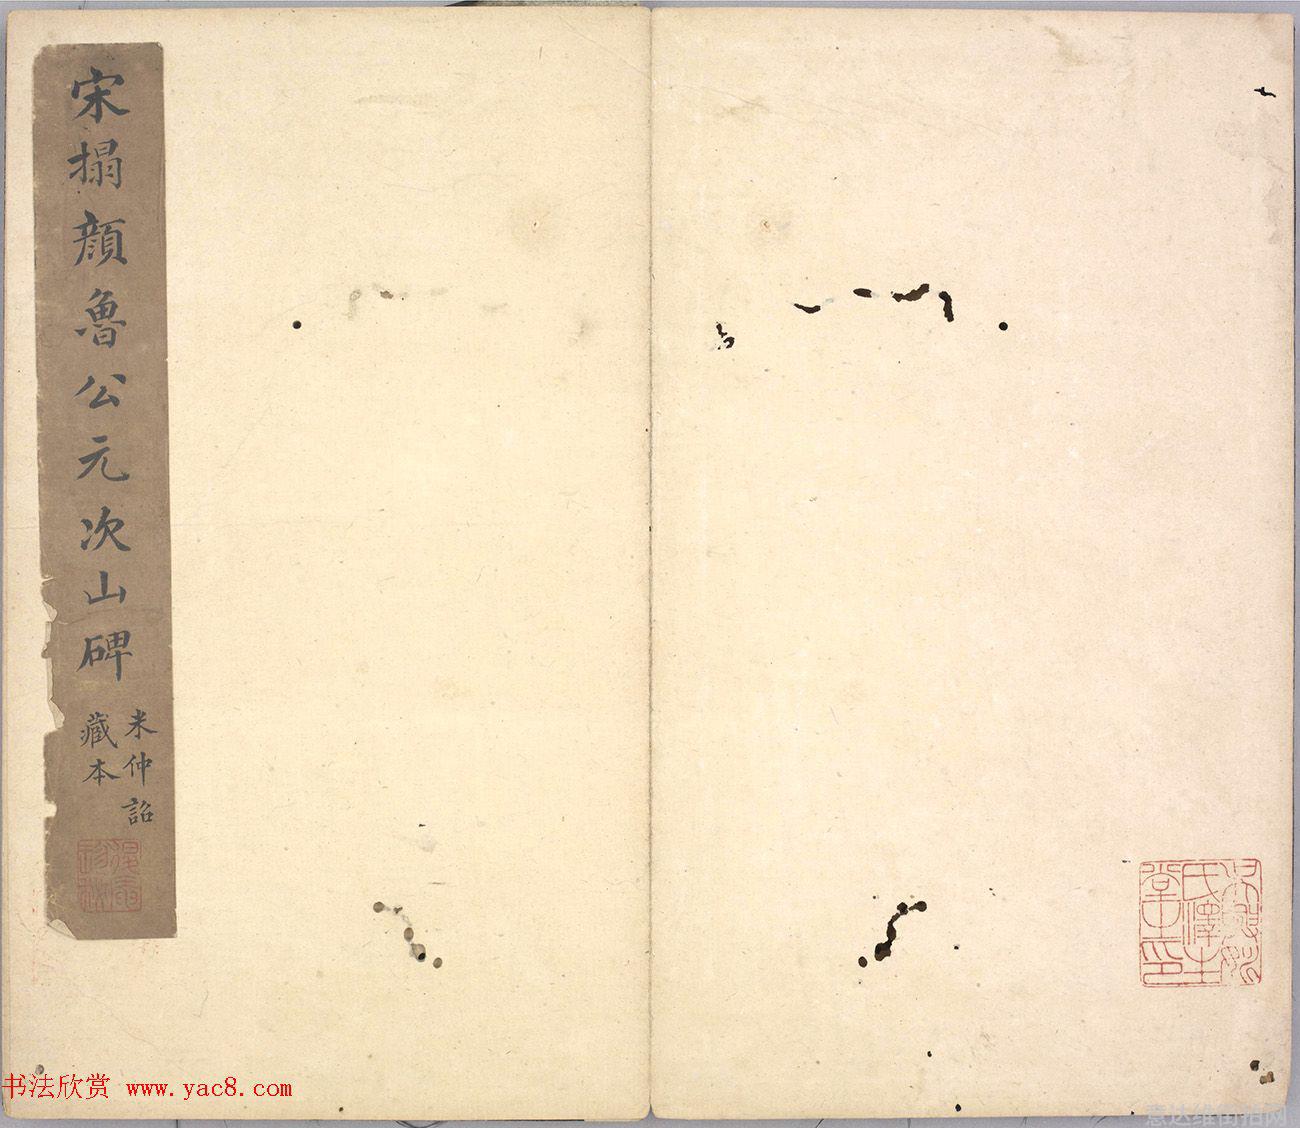 宋搨顔魯公元次山碑
米仲詔
藏本
書法欣賞 www.yac8.com